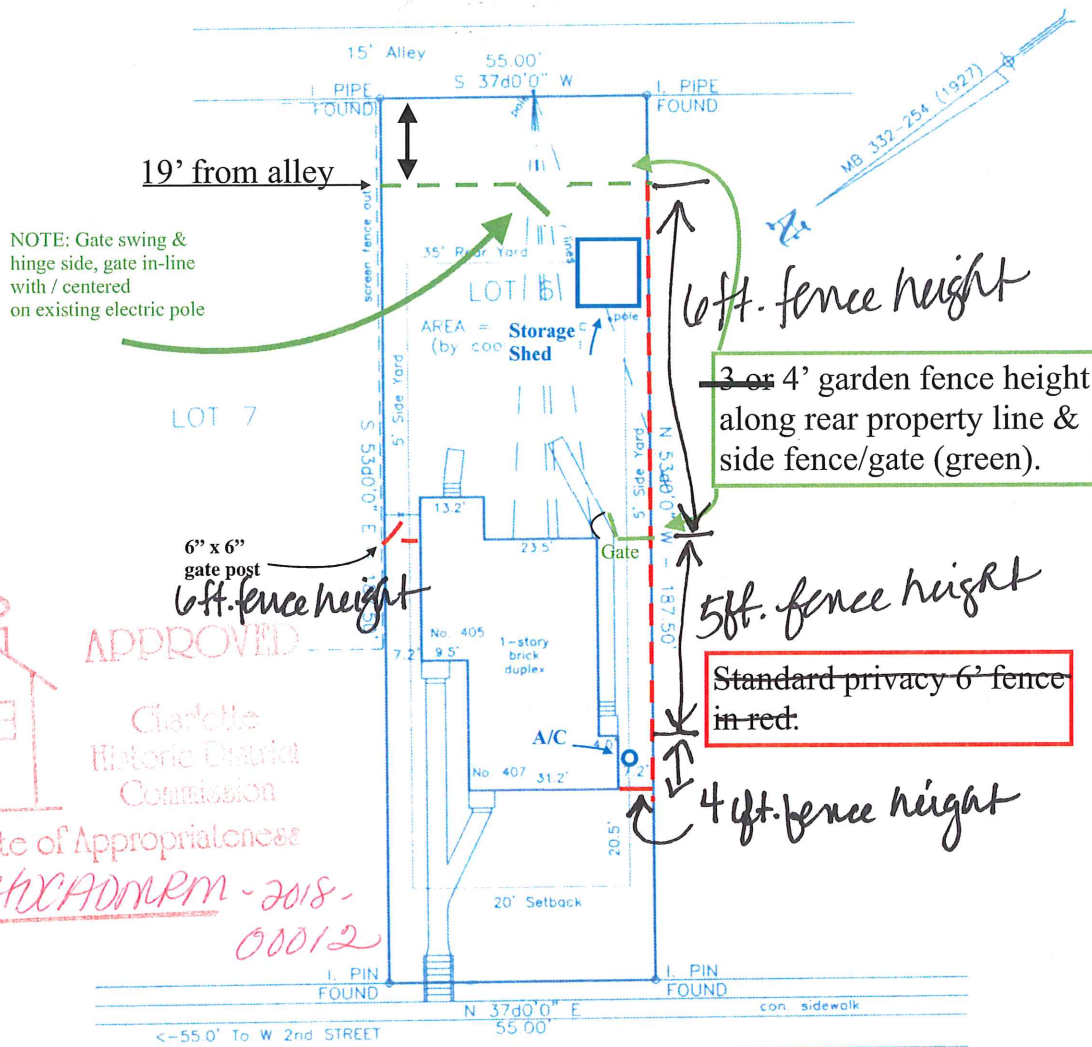 15' Alley
55.00'
S 37d0'0" W
I. PIPE
FOUND
I. PIPE
FOUND
pole
MB 332-254 (1927)
N
19' from alley
screen fence out
NOTE: Gate swing &
hinge side, gate in-line
with / centered
on existing electric pole
35' Rear Yard
lines
LOT 6
AREA =
(by coo
Storage
Shed
pole
6ft. fence height
3 or 4' garden fence height
along rear property line &
side fence/gate (green).
LOT 7
5' Side Yard
S 53d0'0" E
5' Side Yard
N 53d0'0" W - 187.50'
13.2'
23.5'
Gate
6" x 6"
gate post
6ft. fence height
5ft. fence height
No. 405
9.5'
7.2'
1-story
brick
duplex
Standard privacy 6' fence
in red.
A/C
4.0'
7.2'
No 407
31.2'
4ft. fence height
20.5'
20' Setback
APPROVED
Charlotte
Historic District
Commission
te of Appropriateness
HDCADMRM - 2018-
00012
I. PIN
FOUND
I. PIN
FOUND
N 37d0'0" E
55.00'
con. sidewalk
<-55.0' To W 2nd STREET